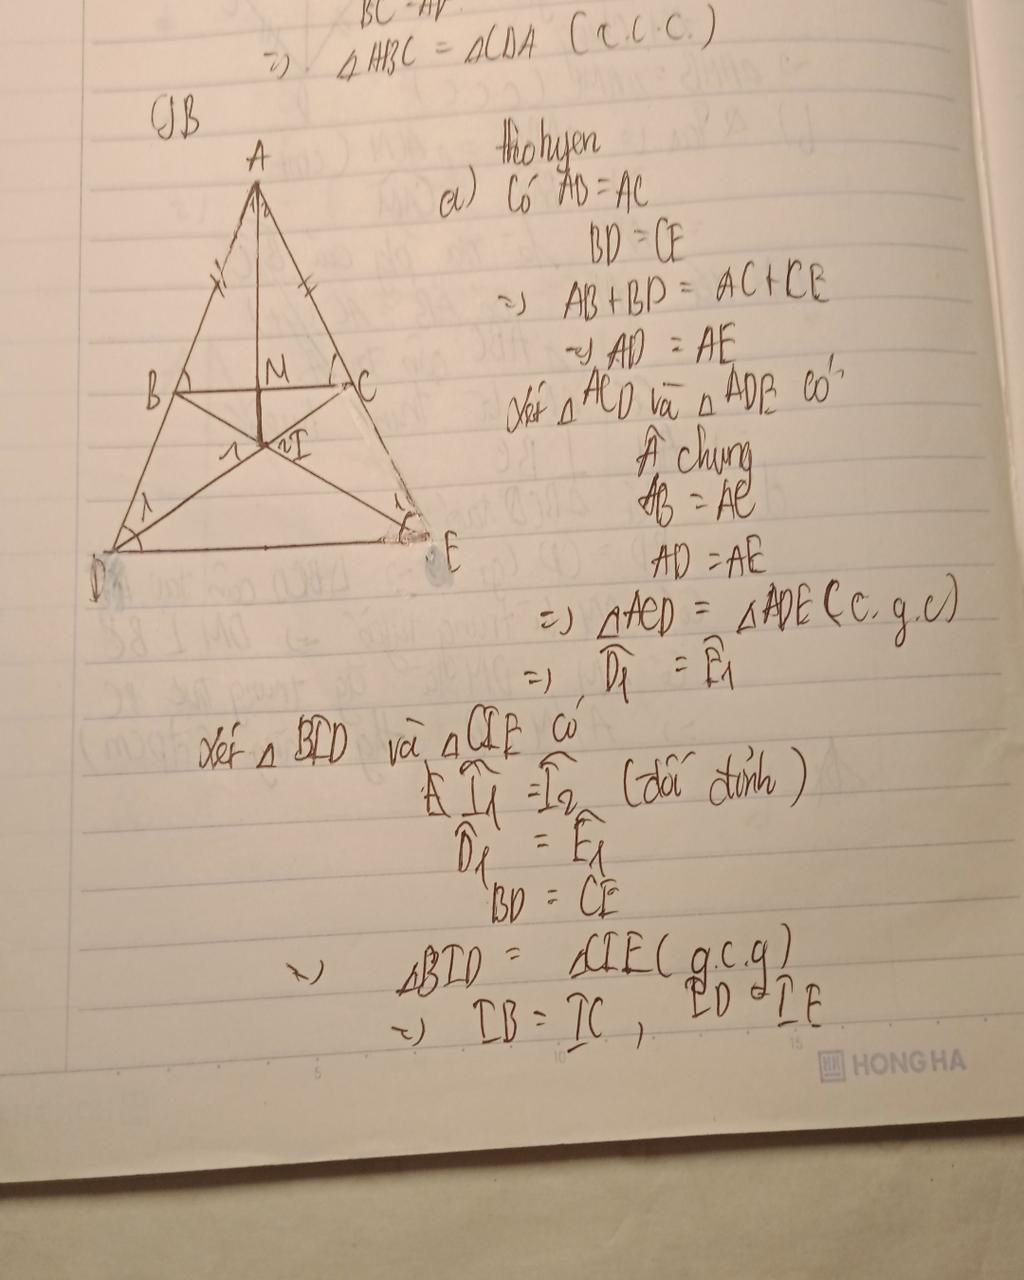 BC = AD
=> △ABC = △CDA (c.c.c.)
GB
A
B
M
C
1
2
I
1
1
D
E
a) Có AB = AC
BD = CE
=> AB + BD = AC + CE
=> AD = AE
Xét △ACD và △ADE có
Â chung
AB = AC
AD = AE
=> △ACD = △ADE (c.g.c)
=> D̂1 = Ê1
Xét △BID và △CIE có
Î1 = Î2 (đối đỉnh)
D̂1 = Ê1
BD = CE
=> △BID = △CIE (g.c.g)
=> IB = IC, ID = IE
5
10
15
HONG HA